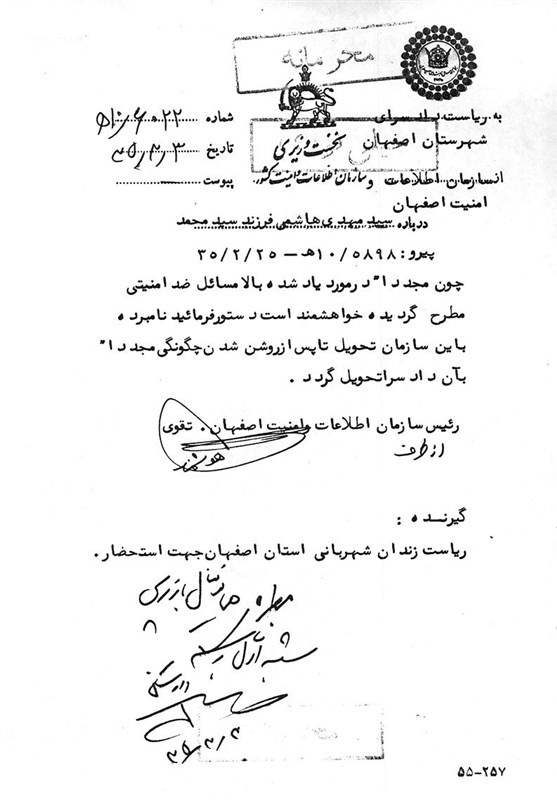 محرمانه
به ریاست دادسرای
شهرستان اصفهان
نخست وزیری
سازمان اطلاعات و امنیت کشور
شماره
تاریخ ۳۵/۳/۳
پیوست
از سازمان اطلاعات و
امنیت اصفهان
درباره سید مهدی هاشمی فرزند سید محمد
پیرو: ۱۰/۵۸۹۸ هـ - ۳۵/۲/۲۵
چون مجددا" در مورد یاد شده بالا مسائل ضد امنیتی
مطرح گردیده خواهشمند است دستور فرمائید نامبرده
باین سازمان تحویل تا پس از روشن شدن چگونگی مجددا"
بآن دادسرا تحویل گردد.
رئیس سازمان اطلاعات و امنیت اصفهان. تقوی
از طرف
گیرنده:
ریاست زندان شهربانی استان اصفهان جهت استحضار.
۵۵-۲۵۷